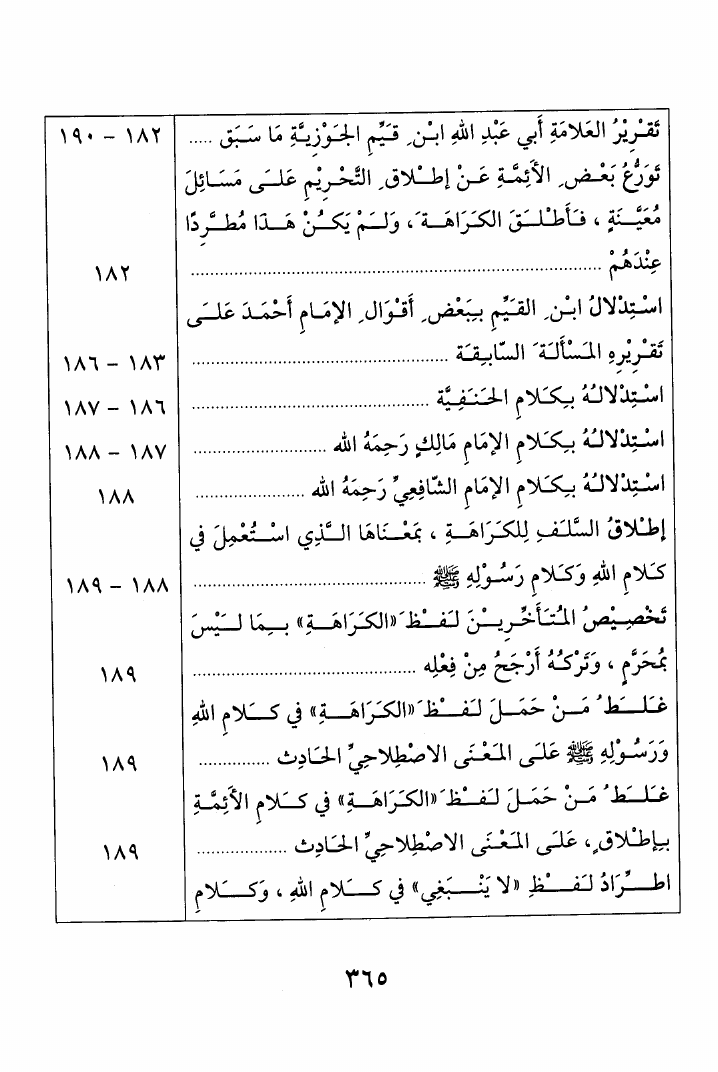 تَقْرِيْرُ العَلامَةِ أَبي عَبْدِ اللهِ ابْنِ قَيِّمِ الجَوْزِيَّةِ مَا سَبَق ..... ١٨٢ – ١٩٠
تَوَرُّعُ بَعْضِ الأَئِمَّةِ عَنْ إطْلاقِ التَّحْرِيْمِ عَلَى مَسَائِلَ
مُعَيَّنَةٍ ، فَأَطْلَقَ الكَرَاهَةَ، وَلَمْ يَكُنْ هَذَا مُطَّرِدًا
عِنْدَهُمْ ..... ١٨٢
اسْتِدْلالُ ابْنِ القَيِّمِ بِبَعْضِ أَقْوَالِ الإمَامِ أَحْمَدَ عَلَى
تَقْرِيْرِهِ المَسْأَلَةَ السَّابِقَةَ ..... ١٨٣ – ١٨٦
اسْتِدْلالُهُ بِكَلامِ الحَنَفِيَّة ..... ١٨٦ – ١٨٧
اسْتِدْلالُهُ بِكَلامِ الإمَامِ مَالِكٍ رَحِمَهُ الله ..... ١٨٧ – ١٨٨
اسْتِدْلالُهُ بِكَلامِ الإمَامِ الشَّافِعِيِّ رَحِمَهُ الله ..... ١٨٨
إطْلاقُ السَّلَفِ لِلكَرَاهَةِ ، بَمَعْنَاهَا الَّذِي اسْتُعْمِلَ في
كَلامِ اللهِ وَكَلامِ رَسُوْلِهِ ﷺ ..... ١٨٨ – ١٨٩
تَخْصِيْصُ المُتَأَخِّرِيْنَ لَفْظَ «الكَرَاهَةِ» بِمَا لَيْسَ
بمُحَرَّمٍ ، وَتَرْكُهُ أَرْجَحُ مِنْ فِعْلِه ..... ١٨٩
غَلَطُ مَنْ حَمَلَ لَفْظَ «الكَرَاهَةِ» في كَلامِ اللهِ
وَرَسُوْلِهِ ﷺ عَلَى المَعْنَى الاصْطِلاحِيِّ الحَادِث ..... ١٨٩
غَلَطُ مَنْ حَمَلَ لَفْظَ «الكَرَاهَةِ» في كَلامِ الأَئِمَّةِ
بِإطْلاقٍ، عَلَى المَعْنَى الاصْطِلاحِيِّ الحَادِث ..... ١٨٩
اطِّرَادُ لَفْظِ «لا يَنْبَغِي» في كَلامِ اللهِ ، وَكَلامِ
٣٦٥